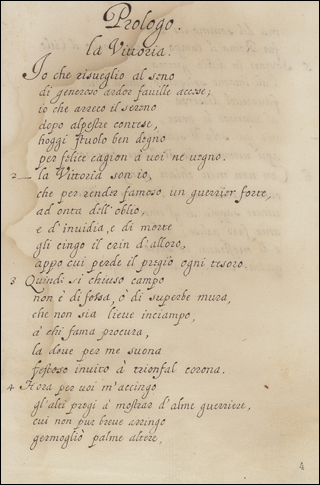 Prologo.
la Vittoria.
Io che risueglio al seno
di generoso ardor fauille accese;
io che arreco il sereno
dopo alpestre contese,
hoggi stuolo ben degno
per felice cagion à uoi ne uegno.
2 la Vittoria son io,
che per render famoso un guerrier forte,
ad onta dell'oblio,
e d'inuidia, e di morte
gli cingo il crin d'alloro,
appo cui perde il pregio ogni tesoro.
3 Quindi si chiuso campo
non è di fossa, ò di superbe mura,
che non sia lieue inciampo,
à chi fama procura,
la doue per me suona
festoso inuito à trionfal corona.
4 Hora per uoi m'accingo
gl'alti pregi à mostrar d'alme guerriere,
cui non pur breue arringo
germogliò palme altere,
4